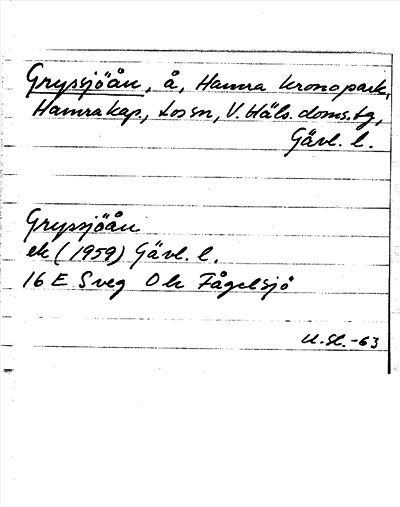 Gryssjöån, å, Hamra kronopark,
Hamra kap., Los sn, V. Häls. doms.tg,
Gävl. l.
Gryssjöån
ek (1959) Gävl. l.
16 E Sveg 0 k Fågelsjö
U.Sl.-63